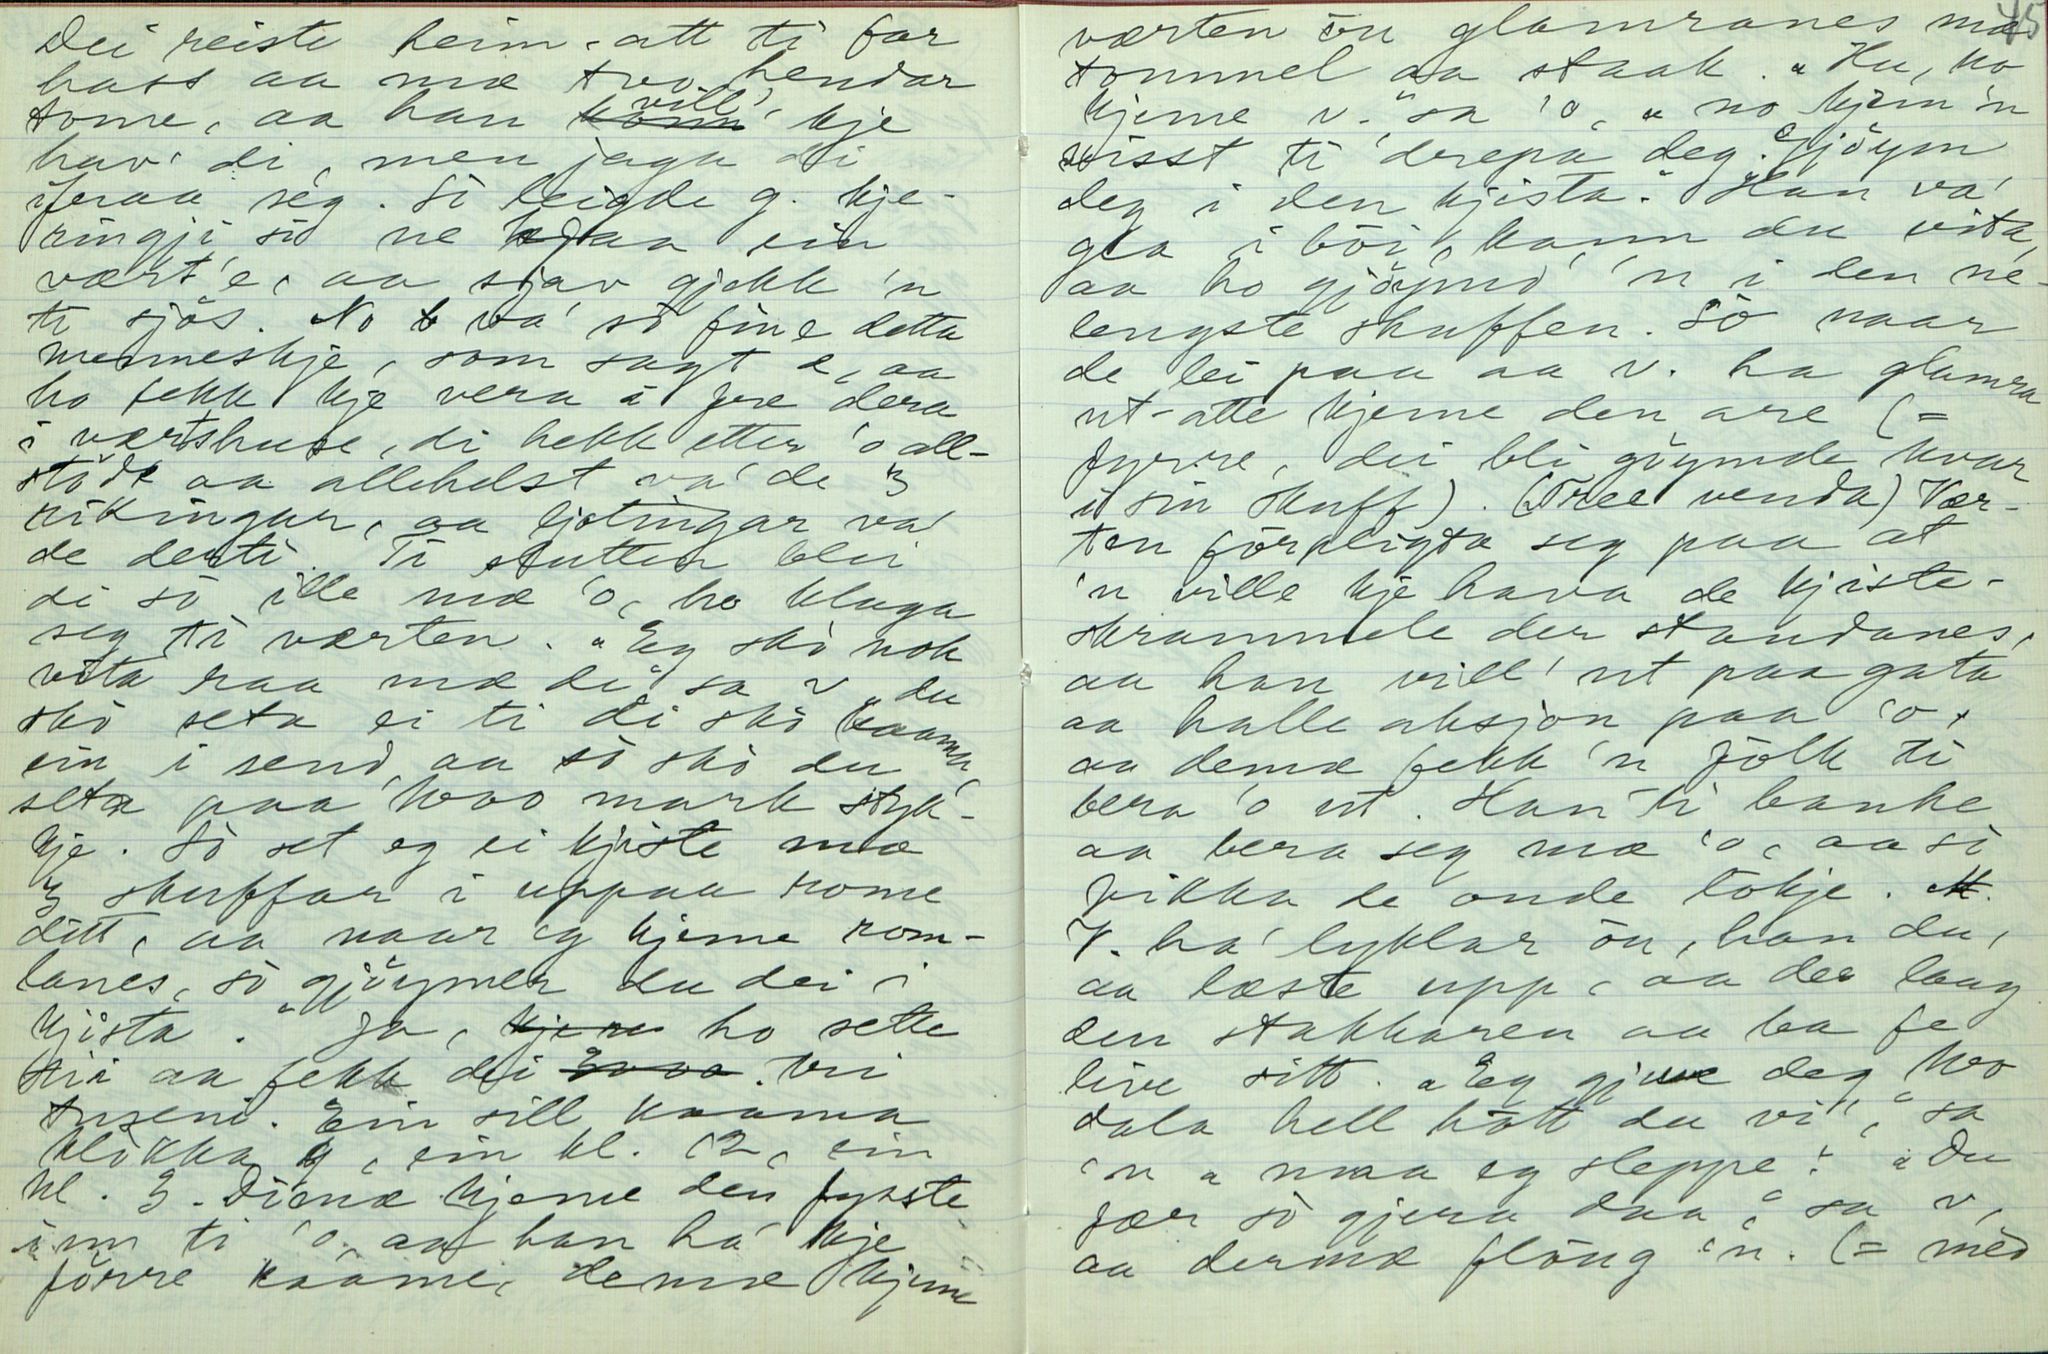 Dei reiste heim-att ti far
hass aa mæ tvo hendar
tome, aa han vill' kje
hav' di, men jaga di
ifraa seg. Sò leigde g. kje-
ringji si ne hjaa ein
vært'e, aa sjøv gjekk 'n
ti sjös. No va' sò fine detta
menneskje, som sagt e, aa
ho fekk kje vera i fre dera
i værtshuse, di hekk etter 'o all-
stödt aa allehelst va' de 3
rikingar, aa ljotingar va'
de derti. Ti slutten blei
di sò ille mæ 'o, ho klaga
seg ti værten. "Eg skò nok
vita raa mæ di" sa v. "du
skò seta ei ti di skò kaama,
ein i send, aa sò skò du
seta paa 1000 mark styk-
kje. Sò set eg ei kjiste mæ
3 skuffar i uppaa rome
ditt, aa naar eg kjeme rom-
lanes, sò gjöymer du dei i
kjista." Ja, ho sette
tii aa fekk dei tri
tuseni. Ein sill kaama
klòkka 9, ein kl. 12, ein
kl. 3. Dimæ kjeme den fysste
inn ti 'o, aa han ha' kje
förre kaame, demæ kjeme
45
værten ön glamranes mæ
tommel aa staak. "Hu, ho
kjeme v." sa 'o, "no kjem 'n
visst ti drepa deg. Gjöym
deg i den kjista." Han va'
gla i böi, kann du vita,
aa ho gjöymd' 'n i den ne-
lengste skuffen. Sò naar
de lei paa aa v. ha glamra
ut-atte kjeme den are (=
fyrre, dei bli göymde kvar
i sin skuff). (Tree venda) Vær-
ten förpligta seg paa at
'n ville kje hava de kjiste-
skrammele der standanes,
aa han vill' ut paa gata
aa halle aksjon paa 'o,
aa demæ fekk 'n fölk ti
bera 'o ut. Han ti banke
aa bera seg mæ 'o, aa sò
pikka de onde lokje.
V. ha' lyklar ön, han du,
aa læste upp, aa der laag
den stakkaren aa ba fe
live sitt. "Eg gjeve deg 100
dala hell hått du vi'," sa
'n "maa eg sleppe." "Du
fær sò gjera daa," sa v,
aa dermæ flöug 'n. (= mèd